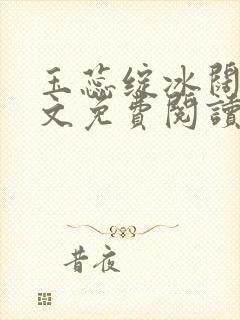 玉蕊綻冰闊
文免費閱讀
昔夜